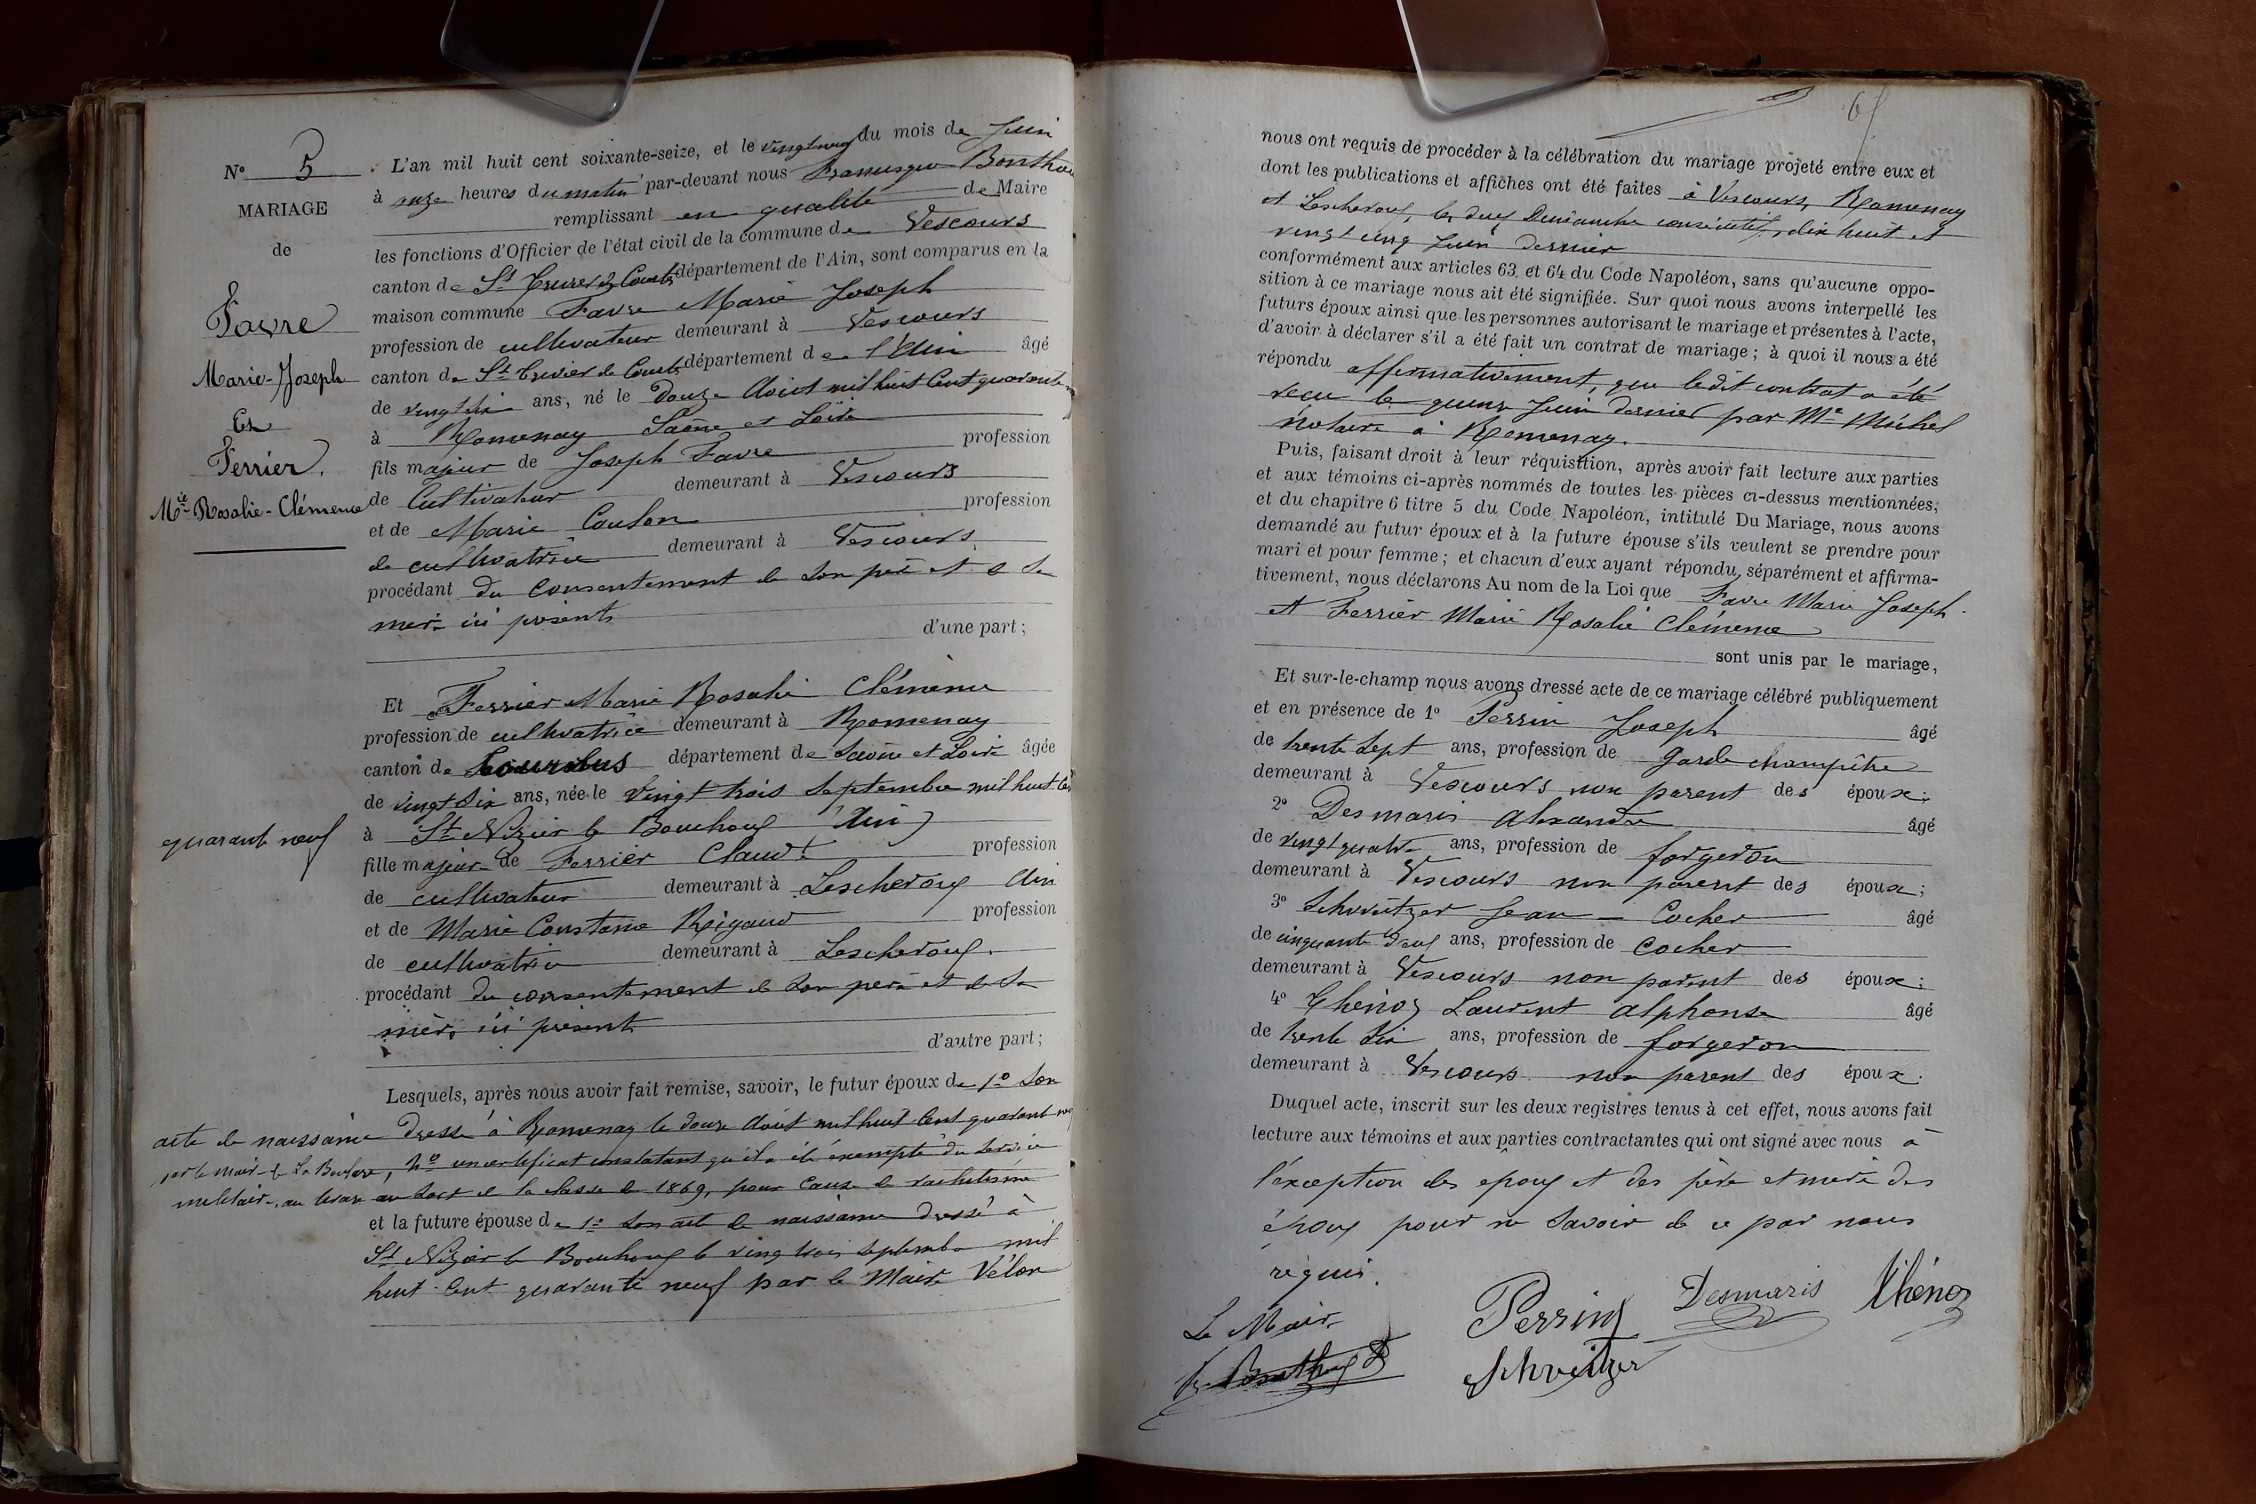 N° 5
MARIAGE
de
Favre
Marie-Joseph
Et
Ferrier,
Mie Rosalie-Clémence
L'an mil huit cent soixante-seize, et le vingt neuf du mois de Juin
à onze heures du matin par-devant nous Bonthou
remplissant en qualité de Maire
les fonctions d'Officier de l'état civil de la commune de Vescours
canton de St Trivier de Courtes département de l'Ain, sont comparus en la
maison commune Favre Marie Joseph
profession de cultivateur demeurant à Vescours
canton de St Trivier de Courtes département de l'Ain âgé
de vingt six ans, né le douze Août mil huit Cent quarante
à Romenay Saône et Loire
fils majeur de Joseph Favre profession
de Cultivateur demeurant à Vescours
et de Marie Coulon profession
de cultivatrice demeurant à Vescours
procédant du consentement de son père et de sa
mère ici présents
d'une part;
Et Ferrier Marie Rosalie Clémence
profession de cultivatrice demeurant à Romenay
canton de département de Saône et Loire âgée
de vingt six ans, née le vingt trois Septembre mil huit Cent
quarante neuf
à St Nizier le Bouchoux (Ain)
fille majeure de Ferrier Claude profession
de cultivateur demeurant à Lescheroux Ain
et de Marie Constance Rigaud profession
de cultivatrice demeurant à Lescheroux.
procédant du consentement de son père et de sa
mère, ici présents
d'autre part;
Lesquels, après nous avoir fait remise, savoir, le futur époux de 1° Son
acte de naissance dressé à Romenay le douze Août mil huit Cent quarante
par le Maire de La , 2° un certificat constatant qu'il a été exempté du service
militaire, au tirage au sort de la classe de 1869, pour cause de rachitisme
et la future épouse de 1° Son acte de naissance dressé à
St Nizier le Bouchoux le vingt trois septembre mil
huit Cent quarante neuf par le Maire Vélon
nous ont requis de procéder à la célébration du mariage projeté entre eux et
dont les publications et affiches ont été faites à Vescours, Romenay
et Lescheroux, les deux Dimanche consécutifs, dix huit et
vingt cinq Juin dernier
conformément aux articles 63 et 64 du Code Napoléon, sans qu'aucune oppo-
sition à ce mariage nous ait été signifiée. Sur quoi nous avons interpellé les
futurs époux ainsi que les personnes autorisant le mariage et présentes à l'acte,
d'avoir à déclarer s'il a été fait un contrat de mariage; à quoi il nous a été
répondu affirmativement, que ledit contrat a été
reçu le quinze Juin dernier par Me Michel
notaire à Romenay.
Puis, faisant droit à leur réquisition, après avoir fait lecture aux parties
et aux témoins ci-après nommés de toutes les pièces ci-dessus mentionnées,
et du chapitre 6 titre 5 du Code Napoléon, intitulé Du Mariage, nous avons
demandé au futur époux et à la future épouse s'ils veulent se prendre pour
mari et pour femme; et chacun d'eux ayant répondu séparément et affirma-
tivement, nous déclarons Au nom de la Loi que Favre Marie Joseph
et Ferrier Marie Rosalie Clémence
sont unis par le mariage,
Et sur-le-champ nous avons dressé acte de ce mariage célébré publiquement
et en présence de 1° Perrin Joseph âgé
de trente Sept ans, profession de garde champêtre
demeurant à Vescours non parent des époux;
2° Desmaris Alexandre âgé
de vingt quatre ans, profession de forgeron
demeurant à Vescours non parent des époux;
3° Schweitzer Jean - Cocher âgé
de cinquante deux ans, profession de cocher
demeurant à Vescours non parent des époux;
4° Thénoz Laurent Alphonse âgé
de trente six ans, profession de forgeron
demeurant à Vescours non parent des époux.
Duquel acte, inscrit sur les deux registres tenus à cet effet, nous avons fait
lecture aux témoins et aux parties contractantes qui ont signé avec nous à
l'exception des époux et des père et mère des
époux pour ne savoir de ce par nous
requis.
Le Maire
Perrin Desmaris Thénoz
Schveitzer